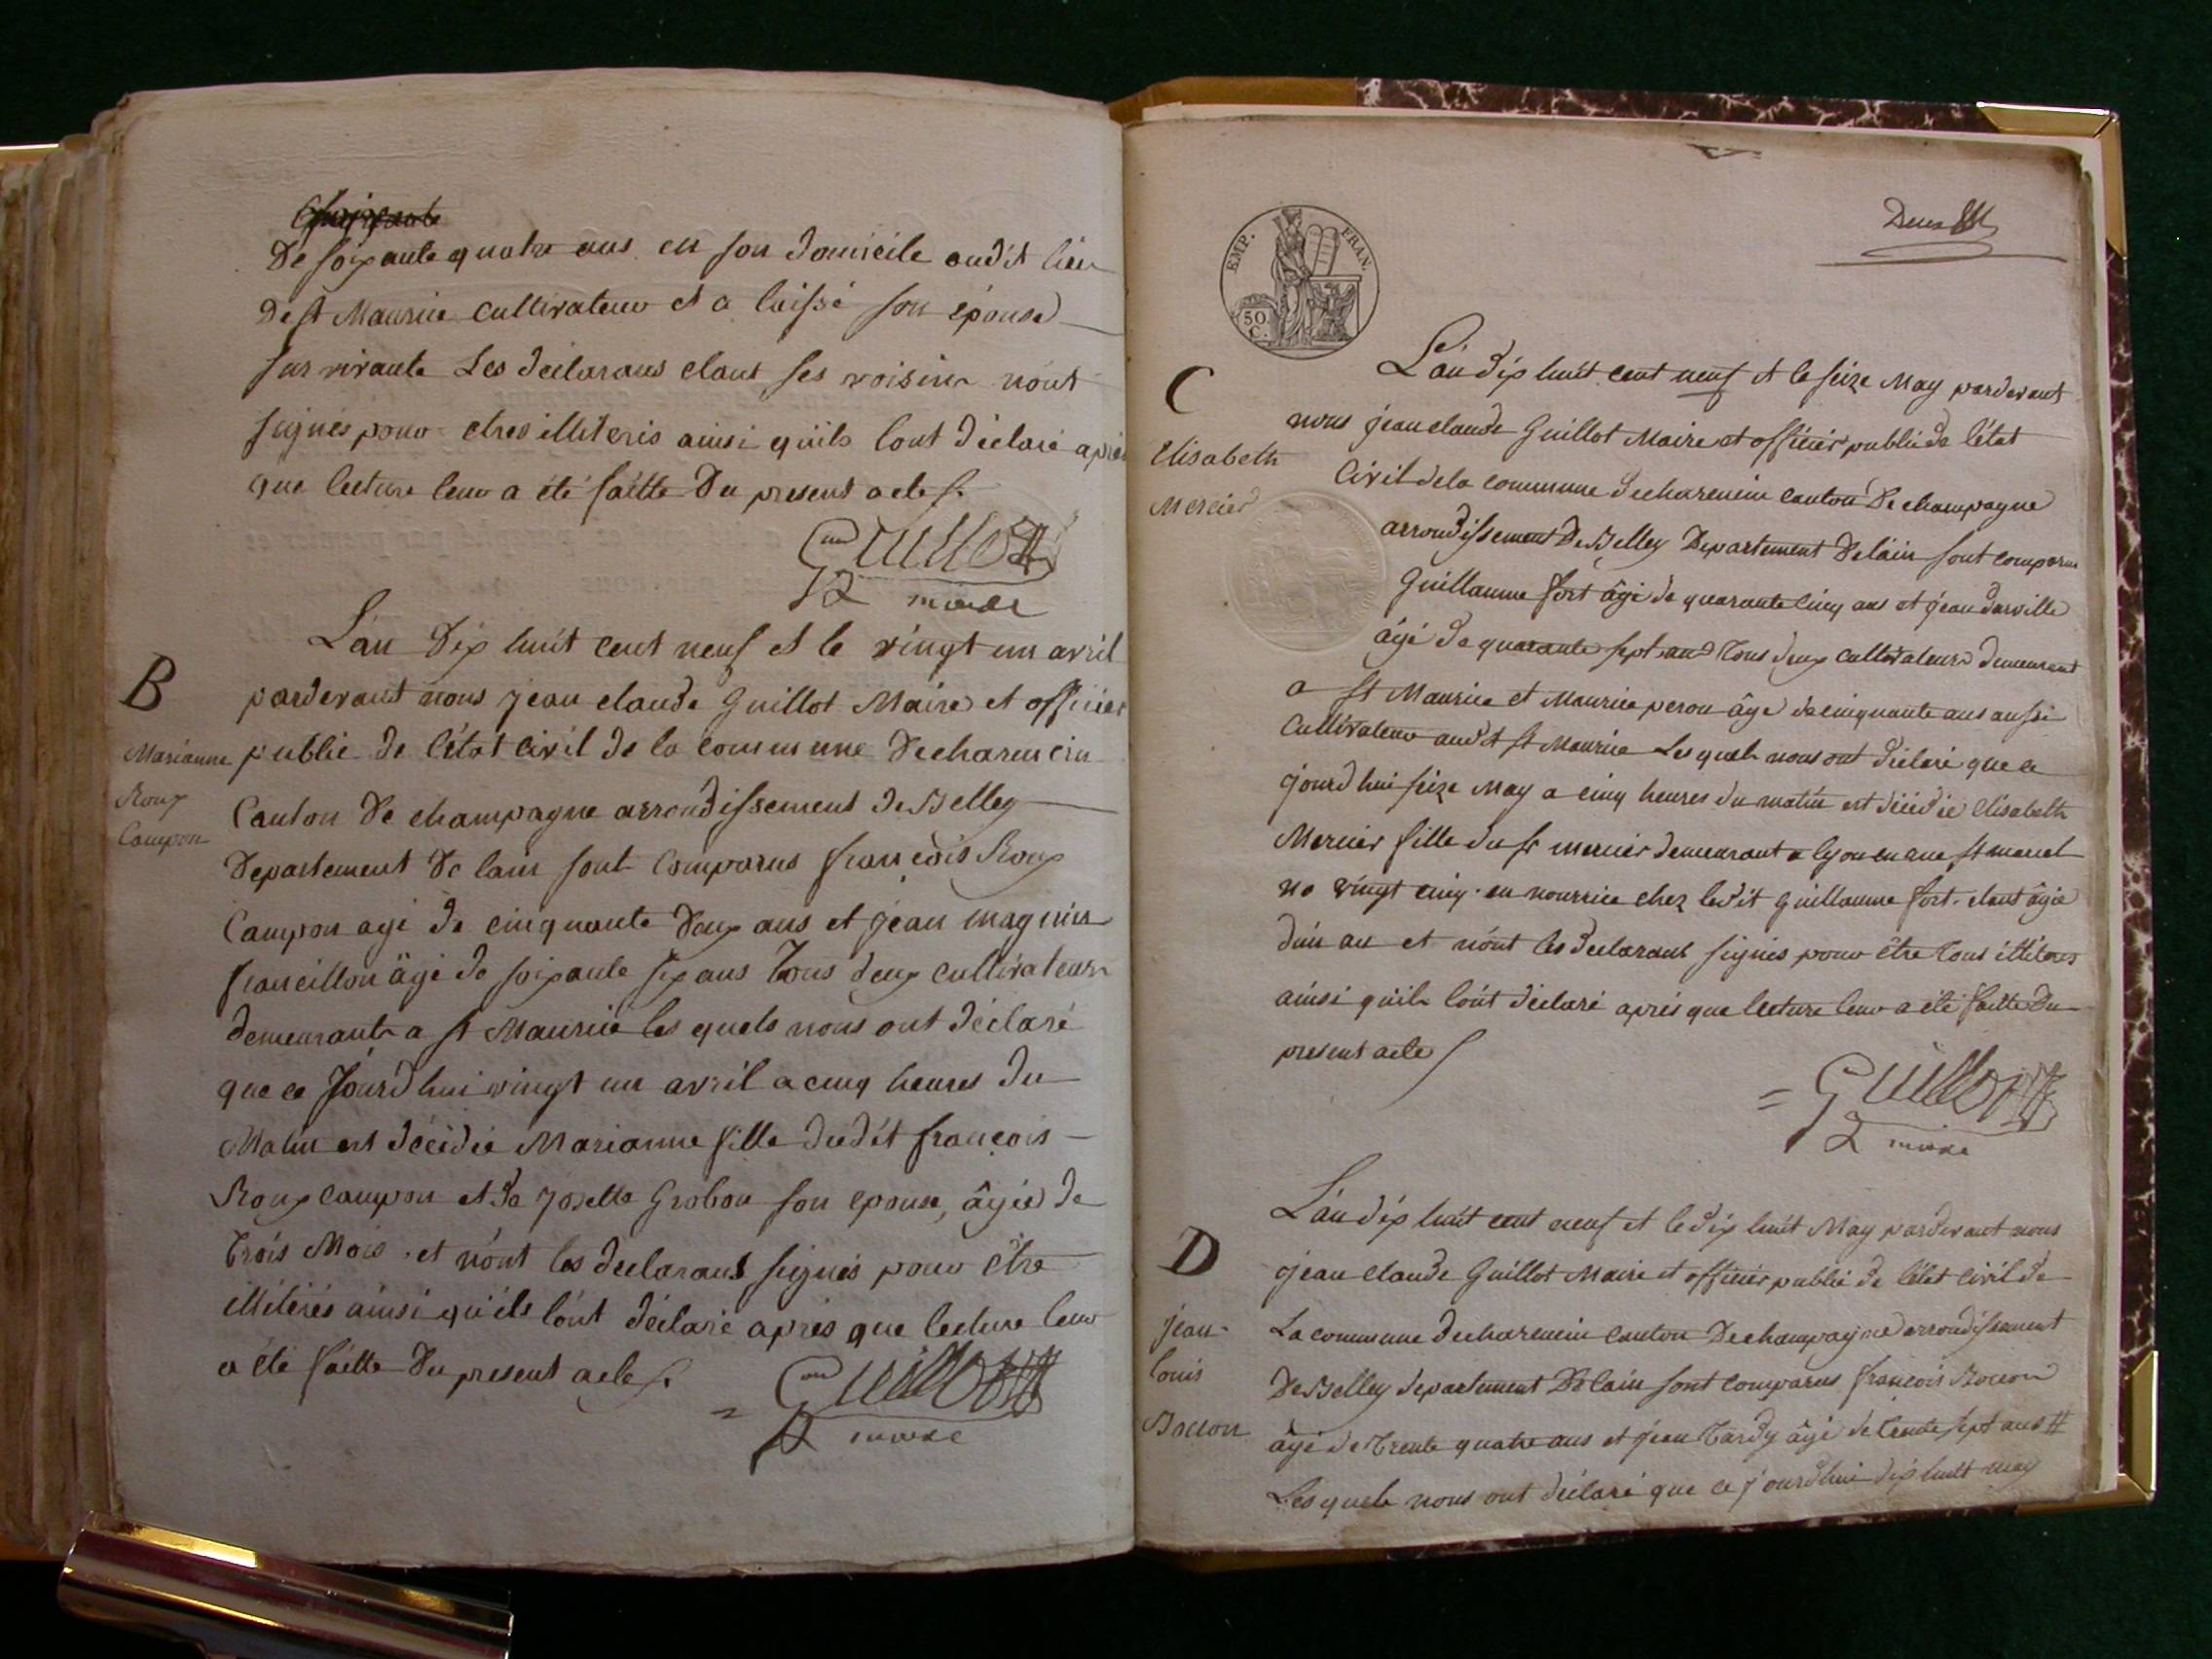 De soixante quatre ans en son domicile audit lieu
De st Maurice cultivateur et a laissé son épouse
survivante Les déclarans etant ses voisins n'ont
signés pour etres illiterés ainsi qu'ils l'ont déclaré après
que lecture leur a été faitte Du present acte
Guillot
maire
L'an Dix huit cent neuf et le vingt un avril
B
pardevant nous jean claude Guillot Maire et officier
Marianne
public de l'état civil de la commune De charencin
Roux
Canton De champagne arrondissement De Belley
Campon
Departement De lain sont Comparus françois Roux
Campon agé de cinquante Deux ans et jean magnin
francillon âgé de soixante six ans Tous deux cultivateurs
demeurants a st Maurice les quels nous ont déclaré
que ce Jourd'hui vingt un avril a cinq heures du
Matin est décédée Marianne fille dudit françois
Roux campon et de josette Grobon son epouse, âgée de
trois Mois. et n'ont les declarans signés pour être
illiterés ainsi qu'ils l'ont déclaré après que lecture leur
a été faitte Du present acte
Guillot
maire
EMP. FRAN.
50 C.
L'an dix huit cent neuf et le seize May pardevant
C
nous jean claude Guillot Maire et officier public de l'état
Elisabeth
Civil de la commune de charencin canton De champagne
Mercier
arrondissement De Belley Departement De lain sont comparus
Guillaume fort âgé de quarante cinq ans et jean darville
âgé de quarante sept ans Tous deux cultivateurs demeurant
a st Maurice et Maurice peron âgé de cinquante ans aussi
Cultivateur audit st Maurice Lesquels nous ont déclaré que ce
jourdhui seize May a cinq heures du matin est décédée Elisabeth
Mercier fille du sr mercier demeurant a lyon en rue st marcel
no vingt cinq. en nourrice chez ledit guillaume fort. etant âgée
d'un an et n'ont les declarans signés pour être tous illiterés
ainsi qu'ils l'ont déclaré après que lecture leur a été faitte Du
present acte
Guillot
maire
L'an dix huit cent neuf et le dix huit May pardevant nous
D
jean claude Guillot Maire et officier public de l'état civil de
jean
La commune de charencin canton De champagne arrondissement
louis
De Belley departement De lain sont comparus françois Bocon
Bocon
âgé de Trente quatre ans et jean Tardy âgé de Trente sept ans #
Lesquels nous ont déclaré que ce jourdhui dix huit may